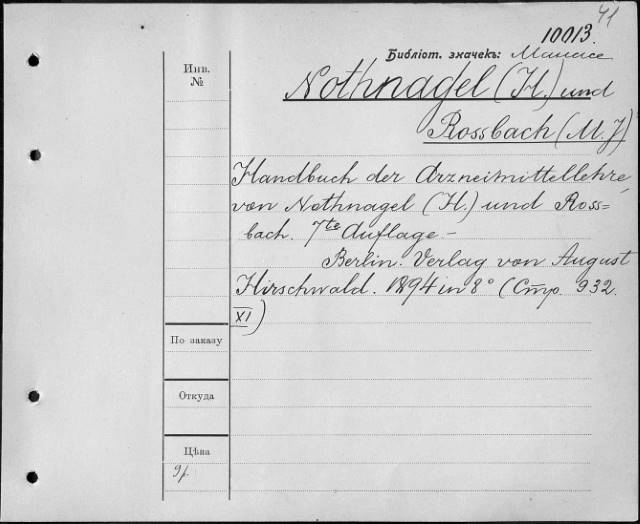 41
10013.
Библіот. значекъ:
Инв.
№
Nothnagel (H.) und
Rossbach (M. J)
Handbuch der Arzneimittellehre,
von Nothnagel (H.) und Ross=
bach. 7te Auflage. –
Berlin. Verlag von August
Hirschwald. 1894 in 8° (Стр. 932.
XI)
По заказу
Откуда
Цѣна
9р.